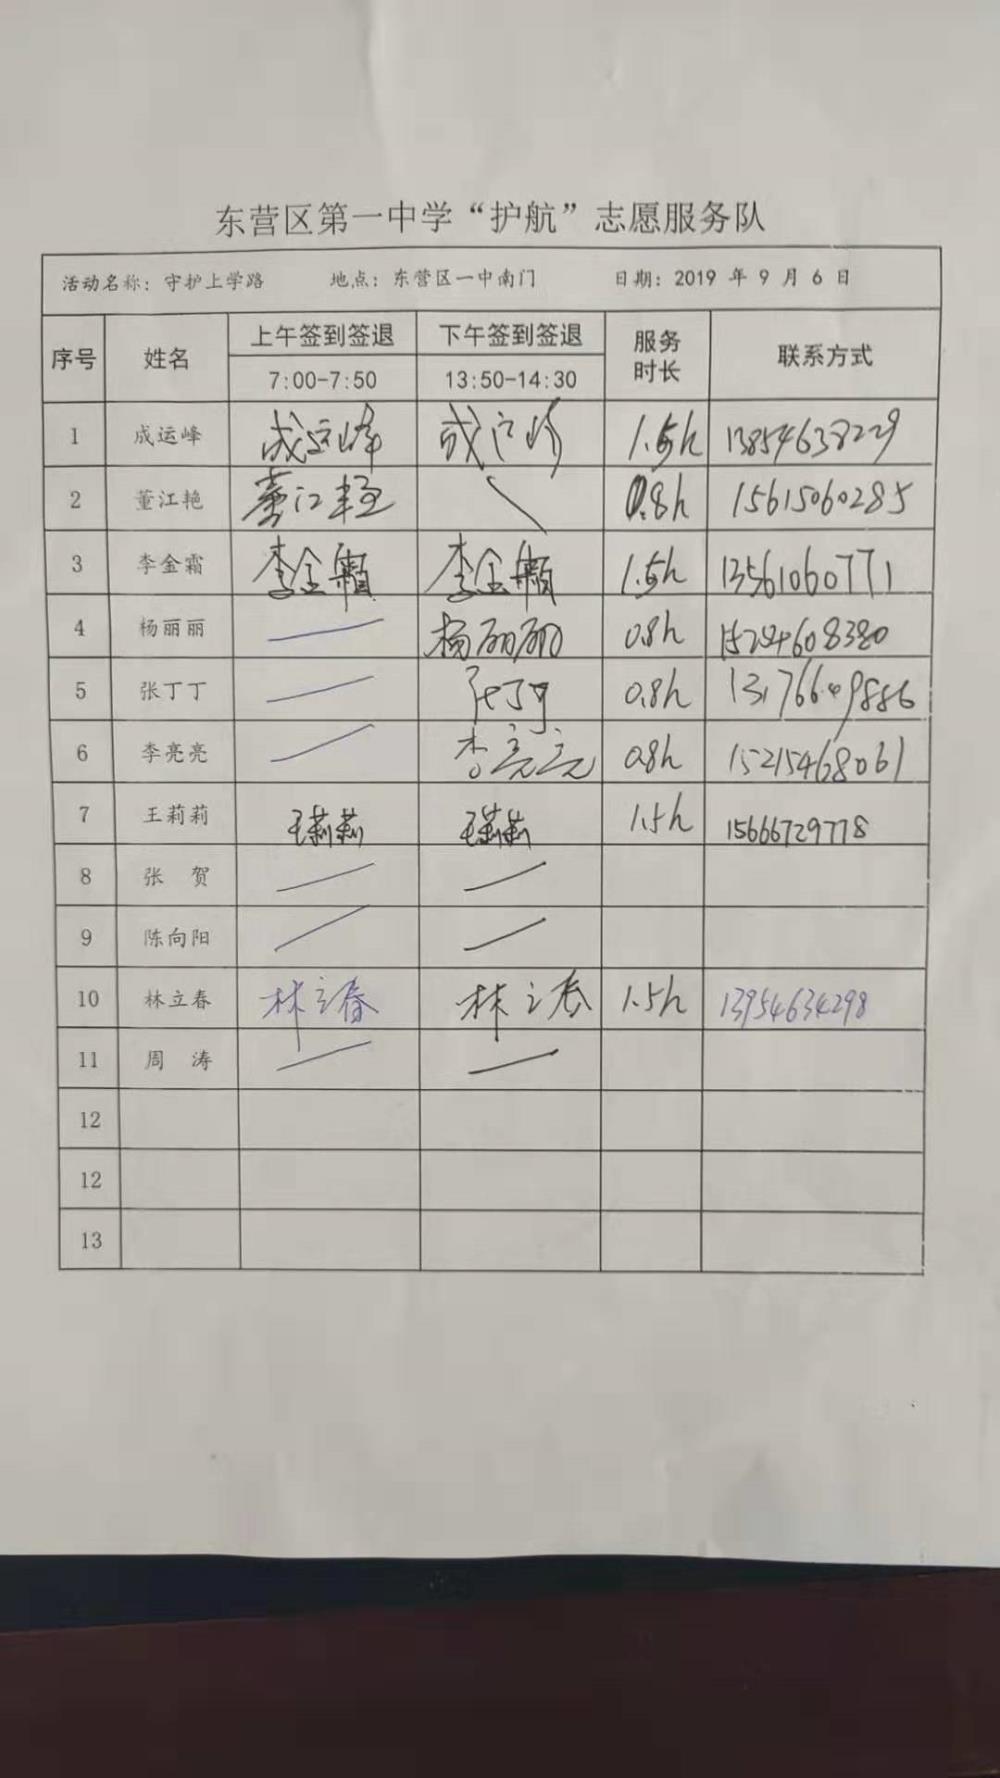 东营区第一中学“护航”志愿服务队
活动名称：守护上学路 地点：东营区一中南门 日期：2019 年 9 月 6 日
序号 姓名 上午签到签退 下午签到签退 服务时长 联系方式
7:00-7:50 13:50-14:30
1 成运峰 成运峰 成运峰 1.5h 13854638229
2 董江艳 董江艳 0.8h 15615060285
3 李金霜 李金霜 李金霜 1.5h 13561060771
4 杨丽丽 杨丽丽 0.8h
5 张丁丁 张丁丁 0.8h
6 李亮亮 李亮亮 0.8h 15215468061
7 王莉莉 王莉莉 王莉莉 1.5h 15666729778
8 张 贺
9 陈向阳
10 林立春 林立春 林立春 1.5h 13954634298
11 周 涛
12
12
13